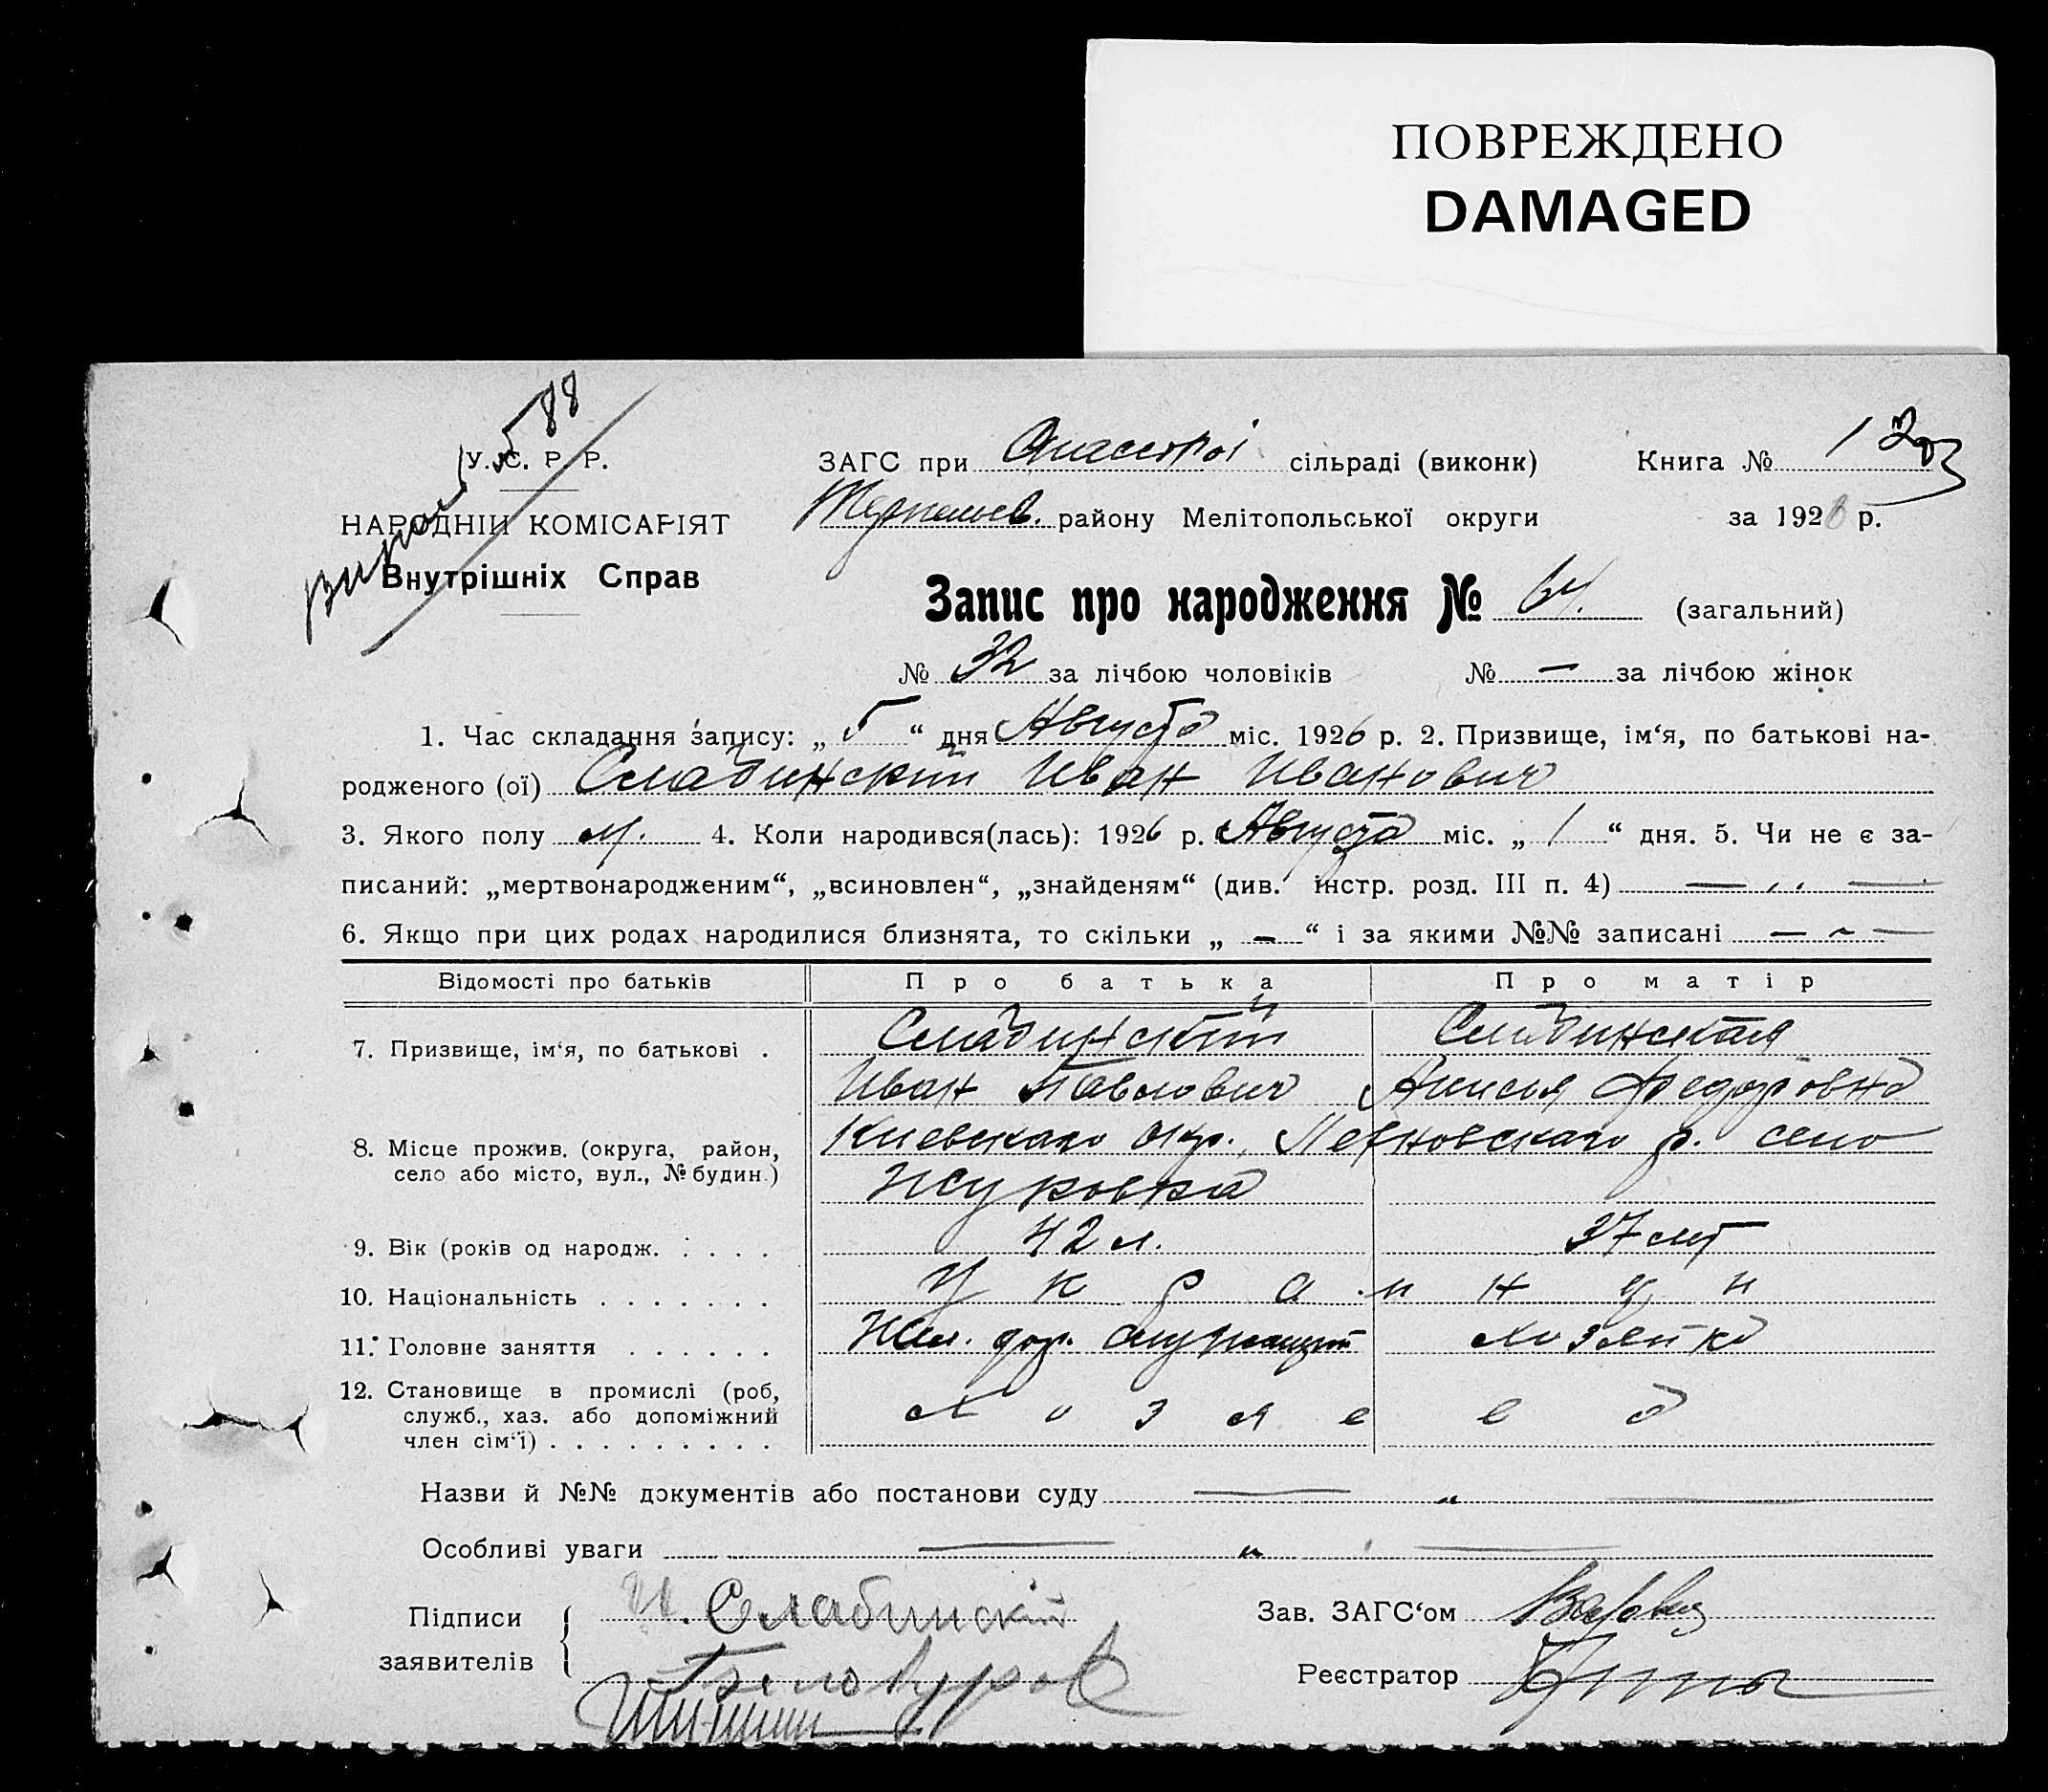 ПОВРЕЖДЕНО
DAMAGED
588
У. С. Р. Р.
НАРОДНІЙ КОМІСАРІЯТ
Внутрішніх Справ
ЗАГС при сільраді (виконк) Книга № 1
району Мелітопольської округи за 192 р.
Запис про народження № 64. (загальний)
№ 32 за лічбою чоловіків № — за лічбою жінок
1. Час складання запису: „ 5 “ дня Августа міс. 1926 р. 2. Призвище, ім‘я, по батькові на-
родженого (ої) Слабинский Иван Иванович
3. Якого полу м. 4. Коли народився(лась): 1926 р. Августа міс. „ 1 “ дня. 5. Чи не є за-
писаний: „мертвонародженим“, „всиновлен“, „знайденям“ (див. інстр. розд. III п. 4) — „ —
6. Якщо при цих родах народилися близнята, то скільки „ — “ і за якими №№ записані — „ —
Відомості про батьків Про батька Про матір
7. Призвище, ім‘я, по батькові . Слабинский Слабинская
Иван Павлович Анисья Федоровна
8. Місце прожив. (округа, район, Киевскаго окр., р. село
село або місто, вул., № будин.) Жуковка
9. Вік (років од народж. . . . . 42 л. 37 лет
10. Національність . . . . . . . Украинци
11. Головне заняття . . . . . . Жел. дор. служащий Хозяйка
12. Становище в промислі (роб,
служб., хаз. або допоміжний
член сім‘ї) . . . . . . . . .
Назви й №№ документів або постанови суду — „ —
Особливі уваги — „ —
Підписи И. Слабинский Зав. ЗАГС‘ом
заявителів Белокуров Реєстратор